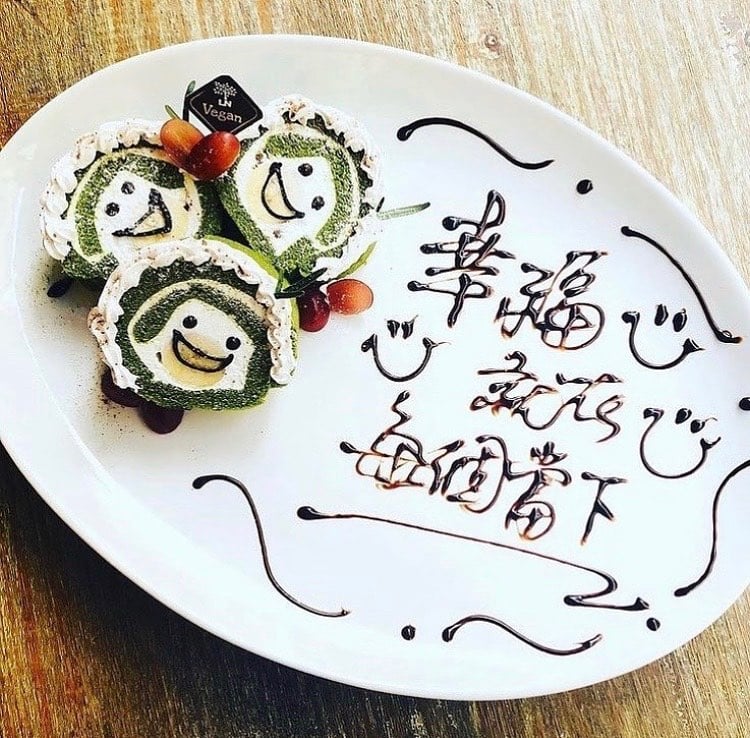 LN
Vegan
幸福
就在
每個當下